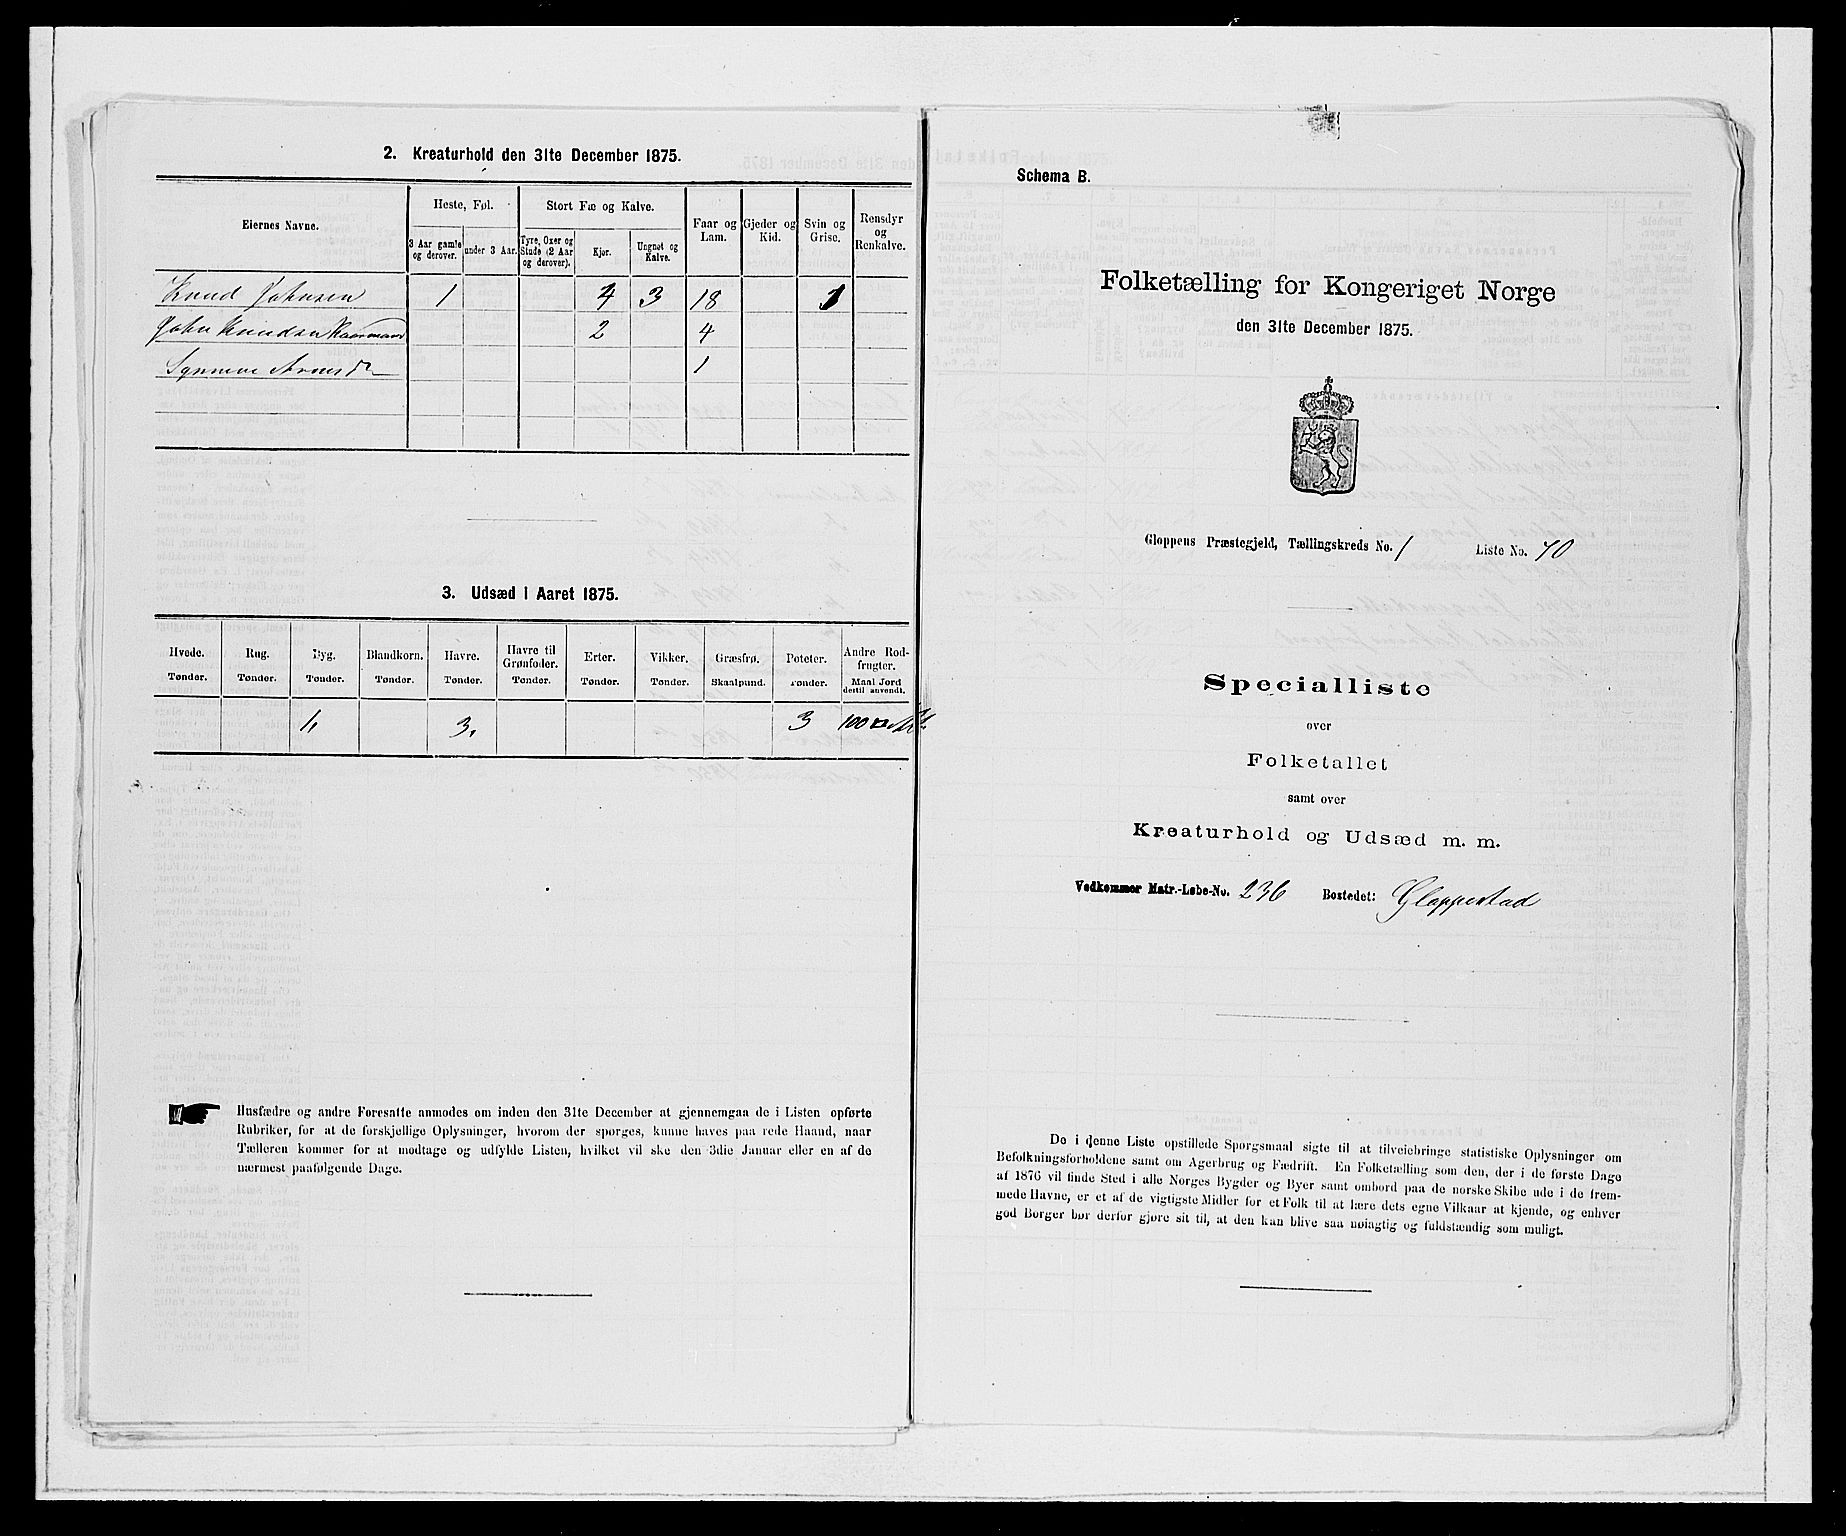 2. Kreaturhold den 31te December 1875.
Eiernes Navne.
Heste, Føl.
Stort Fæ og Kalve.
Faar og Lam.
Gjeder og Kid.
Svin og Grise.
Rensdyr og Renkalve.
3 Aar gamle og derover.
under 3 Aar.
Tyre, Oxer og Stude (2 Aar og derover).
Kjør.
Ungnøt og Kalve.
Knud Johnsen 1 4 3 18 1
John Knudsen Kaarmand 2 4
Synneve Arnesdr 1
3. Udsæd i Aaret 1875.
Hvede. Rug. Byg. Blandkorn. Havre. Havre til Grønfoder. Erter. Vikker. Græsfrø. Poteter. Andre Rodfrugter.
Tønder. Tønder. Tønder. Tønder. Tønder. Tønder. Tønder. Tønder. Skaalpund. Tønder. Maal Jord dertil anvendt.
3. 3 100
Husfædre og andre Foresatte anmodes om inden den 31te December at gjennemgaa de i Listen opførte
Rubriker, for at de forskjellige Oplysninger, hvorom der spørges, kunne haves paa rede Haand, naar
Tælleren kommer for at modtage og udfylde Listen, hvilket vil ske den 3die Januar eller en af de
nærmest paafølgende Dage.
Schema B.
Folketælling for Kongeriget Norge
den 31te December 1875.
Gloppens Præstegjeld, Tællingskreds No. 1 Liste No. 70
Specialliste
over
Folketallet
samt over
Kreaturhold og Udsæd m. m.
Vedkommer Matr.-Løbe-No. 236 Bostedet: Gloppestad
De i denne Liste opstillede Spørgsmaal sigte til at tilveiebringe statistiske Oplysninger om
Befolkningsforholdene samt om Agerbrug og Fædrift. En Folketælling som den, der i de første Dage
af 1876 vil finde Sted i alle Norges Bygder og Byer samt ombord paa de norske Skibe ude i de frem-
mede Havne, er et af de vigtigste Midler for et Folk til at lære dets egne Vilkaar at kjende, og enhver
god Borger bør derfor gjøre sit til, at den kan blive saa nøiagtig og fuldstændig som muligt.